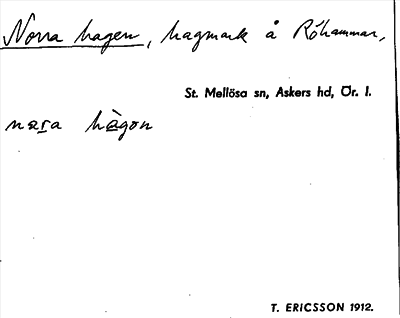 Norra hagen, hagmark å Röhammar,
St. Mellösa sn, Askers hd, Ör. l.
næra hàgon
T. ERICSSON 1912.